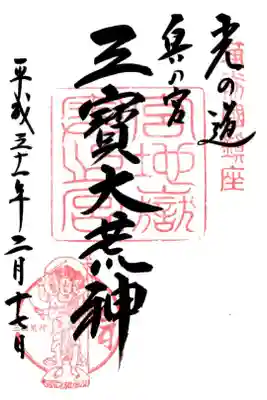 光の道
奥の宮
三寶大荒神
平成三十一年二月十七日
宮地嶽